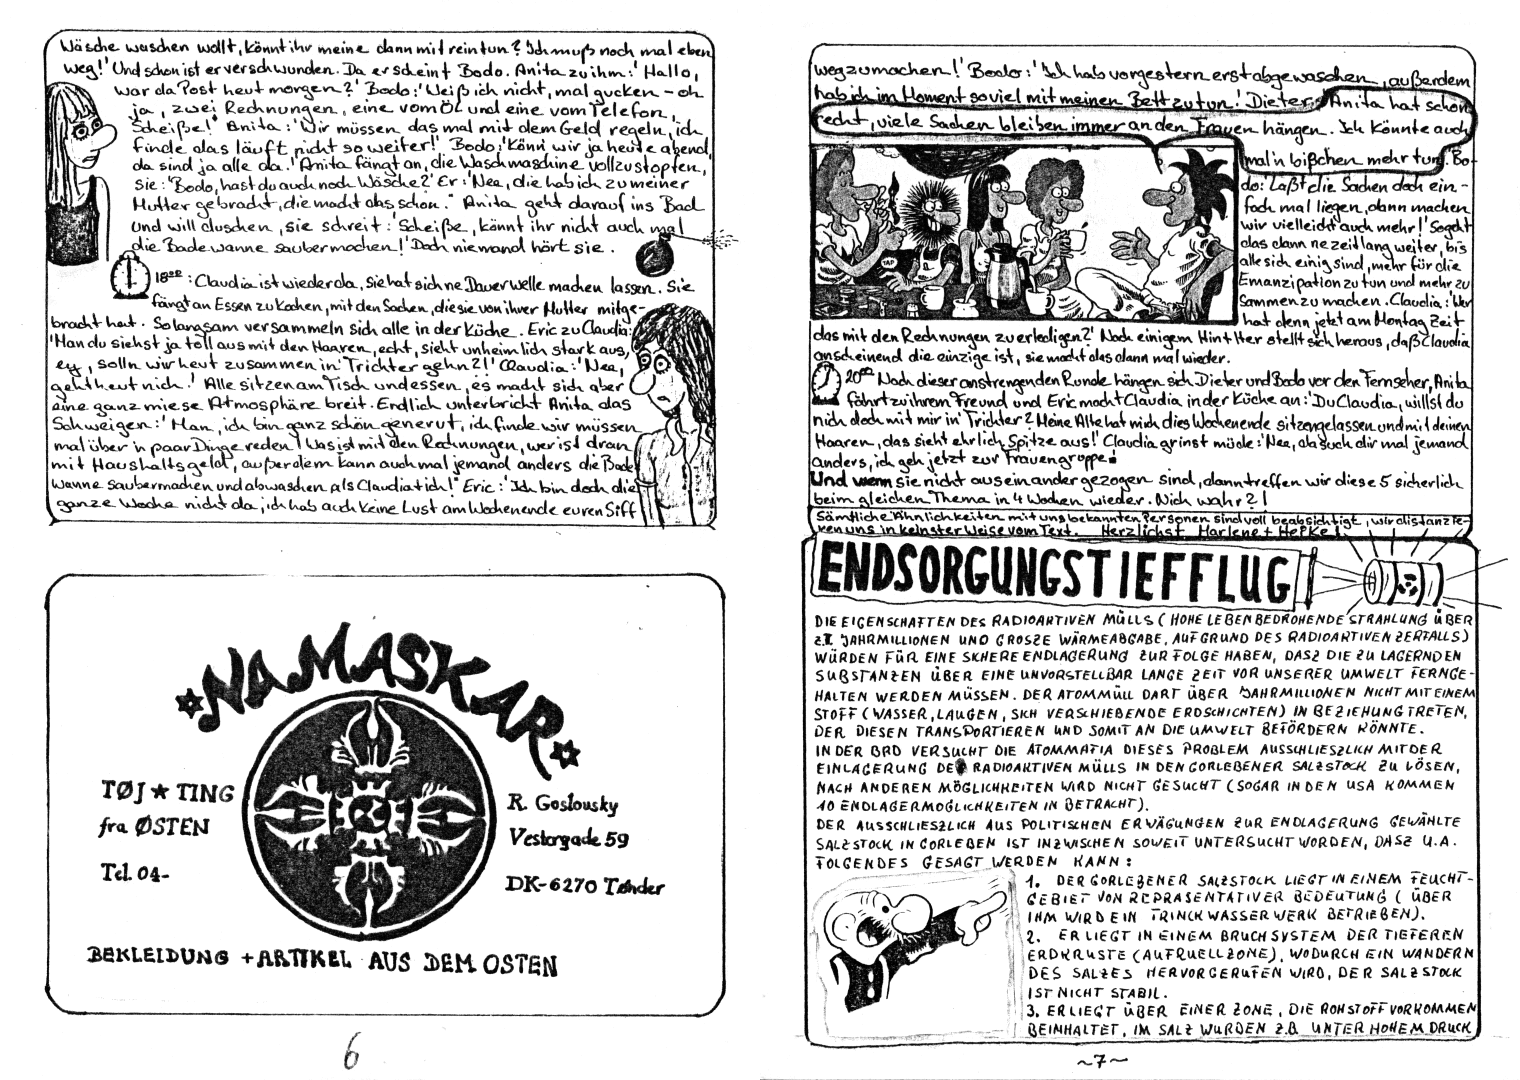 Wäsche waschen wollt, könnt ihr meine dann mit reintun? Ich muß noch mal eben
weg!' Und schon ist er verschwunden. Da erscheint Bodo. Anita zu ihm: 'Hallo,
war da Post heut morgen?' Bodo: 'Weiß ich nicht, mal gucken - oh
ja, zwei Rechnungen, eine vom Öl und eine vom Telefon,
Scheiße!' Anita: 'Wir müssen das mal mit dem Geld regeln, ich
finde das läuft nicht so weiter!' Bodo: 'Könn wir ja heute abend,
da sind ja alle da.' Anita fängt an, die Waschmaschine vollzustopfen,
sie: 'Bodo, hast du auch noch Wäsche?' Er: 'Nee, die hab ich zu meiner
Mutter gebracht, die macht das schon.' Anita geht darauf ins Bad
und will duschen, sie schreit: 'Scheiße, könnt ihr nicht auch mal
die Badewanne saubermachen!' Doch niemand hört sie.
18⁰⁰: Claudia ist wieder da, Sie hat sich ne Dauerwelle machen lassen. Sie
fängt an Essen zu kochen, mit den Sachen, die sie von ihrer Mutter mitge-
bracht hat. So langsam versammeln sich alle in der Küche. Eric zu Claudia:
'Man du siehst ja toll aus mit den Haaren, echt, sieht unheimlich stark aus,
ey, solln wir heut zusammen in' Trichter gehn?!' Claudia: 'Nee,
geht heut nich.' Alle sitzen am Tisch und essen, es macht sich aber
eine ganz miese Atmosphäre breit. Endlich unterbricht Anita das
Schweigen: 'Man, ich bin ganz schön genervt, ich finde wir müssen
mal über 'n paar Dinge reden! Was ist mit den Rechnungen, wer ist dran
mit Haushaltsgeld, außerdem kann auch mal jemand anders die Bade
wanne saubermachen und abwaschen als Claudia + ich!' Eric: 'Ich bin doch die
ganze Woche nicht da, ich hab auch keine Lust am Wochenende euren Siff
NAMASKAR
TØJ ★ TING
fra ØSTEN
Tel. 04-
R. Goslovsky
Vestergade 59
DK-6270 Tønder
BEKLEIDUNG + ARTIKEL AUS DEM OSTEN
6
wegzumachen!' Bodo: 'Ich hab vorgestern erst abgewaschen, außerdem
hab ich im Moment so viel mit meinen Bett zu tun! Dieter: Anita hat schon
recht, viele Sachen bleiben immer an den Frauen hängen. Ich könnte auch
mal 'n bißchen mehr tun. Bo-
do: Laßt die Sachen doch ein-
fach mal liegen, dann machen
wir vielleicht auch mehr!' So geht
das dann ne zeitlang weiter, bis
alle sich einig sind, mehr für die
Emanzipation zu tun und mehr zu
sammen zu machen. Claudia: 'Wer
hat denn jetzt am Montag Zeit
das mit den Rechnungen zu erledigen?' Nach einigem Hin + Her stellt sich heraus, daß Claudia
anscheinend die einzige ist, sie macht das dann mal wieder.
20⁰⁰ Nach dieser anstrengenden Runde hängen sich Dieter und Bodo vor den Fernseher, Anita
fährt zu ihrem Freund und Eric macht Claudia in der Küche an: 'Du Claudia, willst du
nich doch mit mir in' Trichter? Meine Alte hat mich dies Wochenende sitzengelassen und mit deinen
Haaren, das sieht ehrlich Spitze aus!' Claudia grinst müde: 'Nee, da such dir mal jemand
anders, ich geh jetzt zur Frauengruppe!
Und wenn sie nicht auseinander gezogen sind, dann treffen wir diese 5 sicherlich
beim gleichen Thema in 4 Wochen wieder. Nich wahr?!
Sämtliche Ähnlichkeiten mit uns bekannten Personen sind voll beabsichtigt, wir distanzie-
ren uns in keinster Weise vom Text. Herzlichst Marlene +
TAP
ENDSORGUNGSTIEFFLUG
DIE EIGENSCHAFTEN DES RADIOAKTIVEN MÜLLS (HOHE LEBENBEDROHENDE STRAHLUNG ÜBER
z.T. JAHRMILLIONEN UND GROSZE WÄRMEABGABE, AUFGRUND DES RADIOAKTIVEN ZERFALLS)
WÜRDEN FÜR EINE SICHERE ENDLAGERUNG ZUR FOLGE HABEN, DASZ DIE ZU LAGERNDEN
SUBSTANZEN ÜBER EINE UNVORSTELLBAR LANGE ZEIT VOR UNSERER UMWELT FERNGE-
HALTEN WERDEN MÜSSEN. DER ATOMMÜLL DART ÜBER JAHRMILLIONEN NICHT MIT EINEM
STOFF (WASSER, LAUGEN, SICH VERSCHIEBENDE ERDSCHICHTEN) IN BEZIEHUNG TRETEN,
DER DIESEN TRANSPORTIEREN UND SOMIT AN DIE UMWELT BEFÖRDERN KÖNNTE.
IN DER BRD VERSUCHT DIE ATOMMAFIA DIESES PROBLEM AUSSCHLIESZLICH MIT DER
EINLAGERUNG DES RADIOAKTIVEN MÜLLS IN DEN GORLEBENER SALZSTOCK ZU LÖSEN,
NACH ANDEREN MÖGLICHKEITEN WIRD NICHT GESUCHT (SOGAR IN DEN USA KOMMEN
10 ENDLAGERMÖGLICHKEITEN IN BETRACHT).
DER AUSSCHLIESZLICH AUS POLITISCHEN ERWÄGUNGEN ZUR ENDLAGERUNG GEWÄHLTE
SALZSTOCK IN GORLEBEN IST INZWISCHEN SOWEIT UNTERSUCHT WORDEN, DASZ U.A.
FOLGENDES GESAGT WERDEN KANN:
1. DER GORLEBENER SALZSTOCK LIEGT IN EINEM FEUCHT-
GEBIET VON REPRÄSENTATIVER BEDEUTUNG (ÜBER
IHM WIRD EIN TRINCKWASSERWERK BETRIEBEN).
2. ER LIEGT IN EINEM BRUCHSYSTEM DER TIEFEREN
ERDKRUSTE (AUFRUELLZONE), WODURCH EIN WANDERN
DES SALZES HERVORGERUFEN WIRD, DER SALZSTOCK
IST NICHT STABIL.
3. ER LIEGT ÜBER EINER ZONE, DIE ROHSTOFFVORKOMMEN
BEINHALTET, IM SALZ WURDEN Z.B. UNTER HOHEM DRUCK
~7~